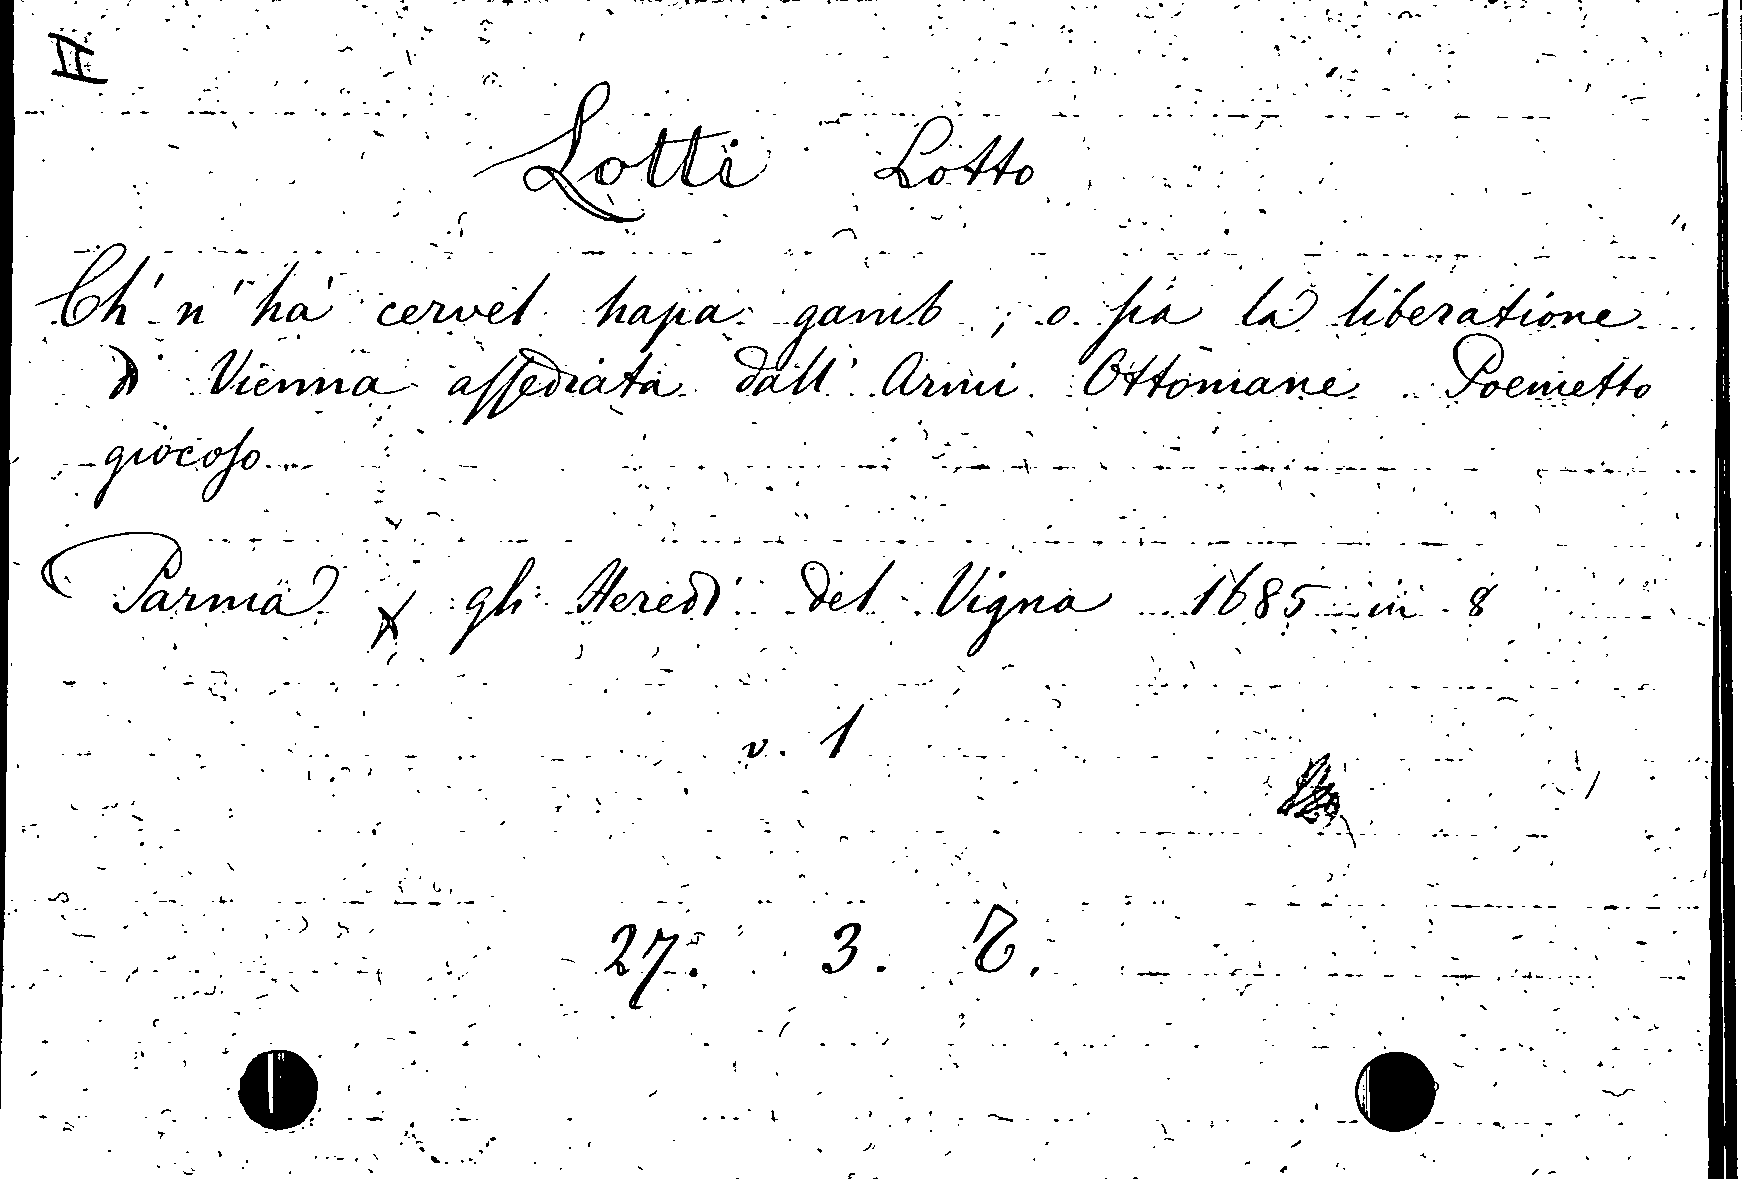 II
Lotti Lotto
Ch' n' ha' cervel hapa gamb ; o sia la liberatione
di Vienna assediata dall' Armi Ottomane Poemetto
giocoso
Parma x gli Heredi del Vigna 1685 in 8
v. 1
27. 3. C.